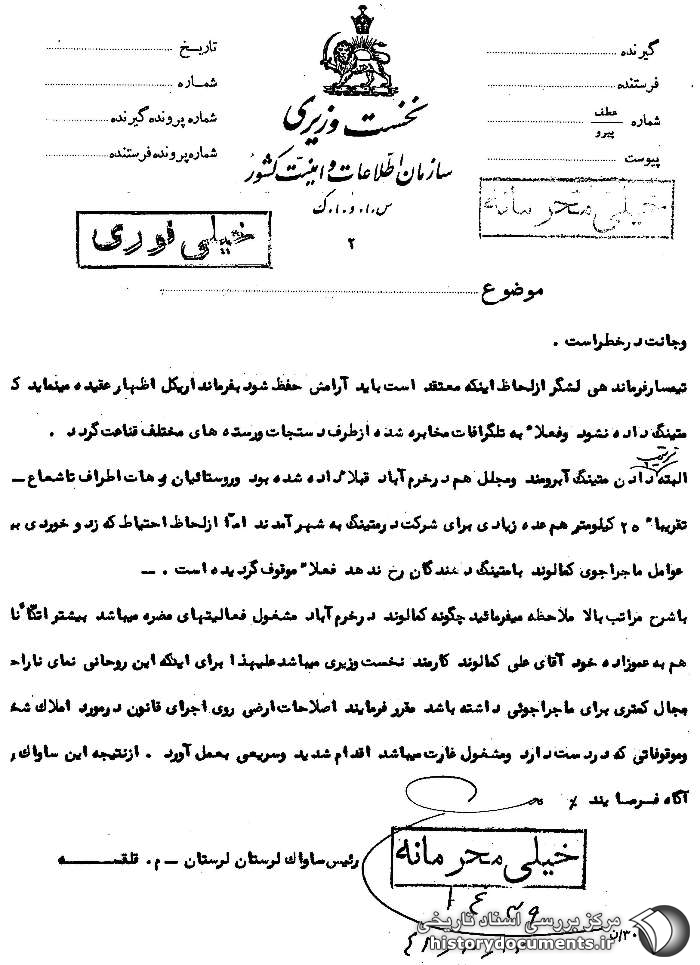 گیرنده
فرستنده
شماره عطف پیرو
پیوست
نخست وزیری
سازمان اطلاعات و امنیت کشور
س.ا.و.ا.ک
۲
تاریخ
شماره
شماره پرونده گیرنده
شماره پرونده فرستنده
خیلی محرمانه
خیلی فوری
موضوع
وجانت در خطر است .
تیمسار فرماندهی لشگر از لحاظ اینکه معتقد است باید آرامش حفظ شود بفرماندار یکل اظهار عقیده مینماید ک
متینگ داده نشود وفعلاً به تلگرافات مخابره شده از طرف دستجات ورسته های مختلف قناعت گردد .
ترتیب
البته دادن متینگ آبرومند ومجلل هم در خرم آباد قبلاً داده شده بود وروستائیان دهات اطراف تاشعاع ــ
تقریباً ۲۵ کیلومتر هم عده زیادی برای شرکت در متینگ به شهر آمدند اما از لحاظ احتیاط که زد و خوردی بی
عوامل ماجراجوی کمالوند با متینگ دهندگان رخ ندهد فعلاً موقوف گردیده است . ــ
باشرح مراتب بالا ملاحظه میفرمائید چگونه کمالوند در خرم آباد مشغول فعالیتهای مضره میباشد بیشتر اتکاً نا
هم به عموزاده خود آقای علی کمالوند کارمند نخست وزیری میباشد علیهذا برای اینکه این روحانی نمای ناراح
مجال کمتری برای ماجراجوئی داشته باشد مقرر فرمایند اصلاحات ارضی روی اجرای قانون در مورد املاک شخ
وموقوفاتی که در دست دارد ومشغول غارت میباشد اقدام شدید وسریعی بعمل آورد . از نتیجه این ساواک ر
آگاه فرمایند ٪
خیلی محرمانه
رئیس ساواک لرستان لرستان ــ م. قلقسه
۳۰/ن
مرکز بررسی اسناد تاریخی
historydocuments.ir